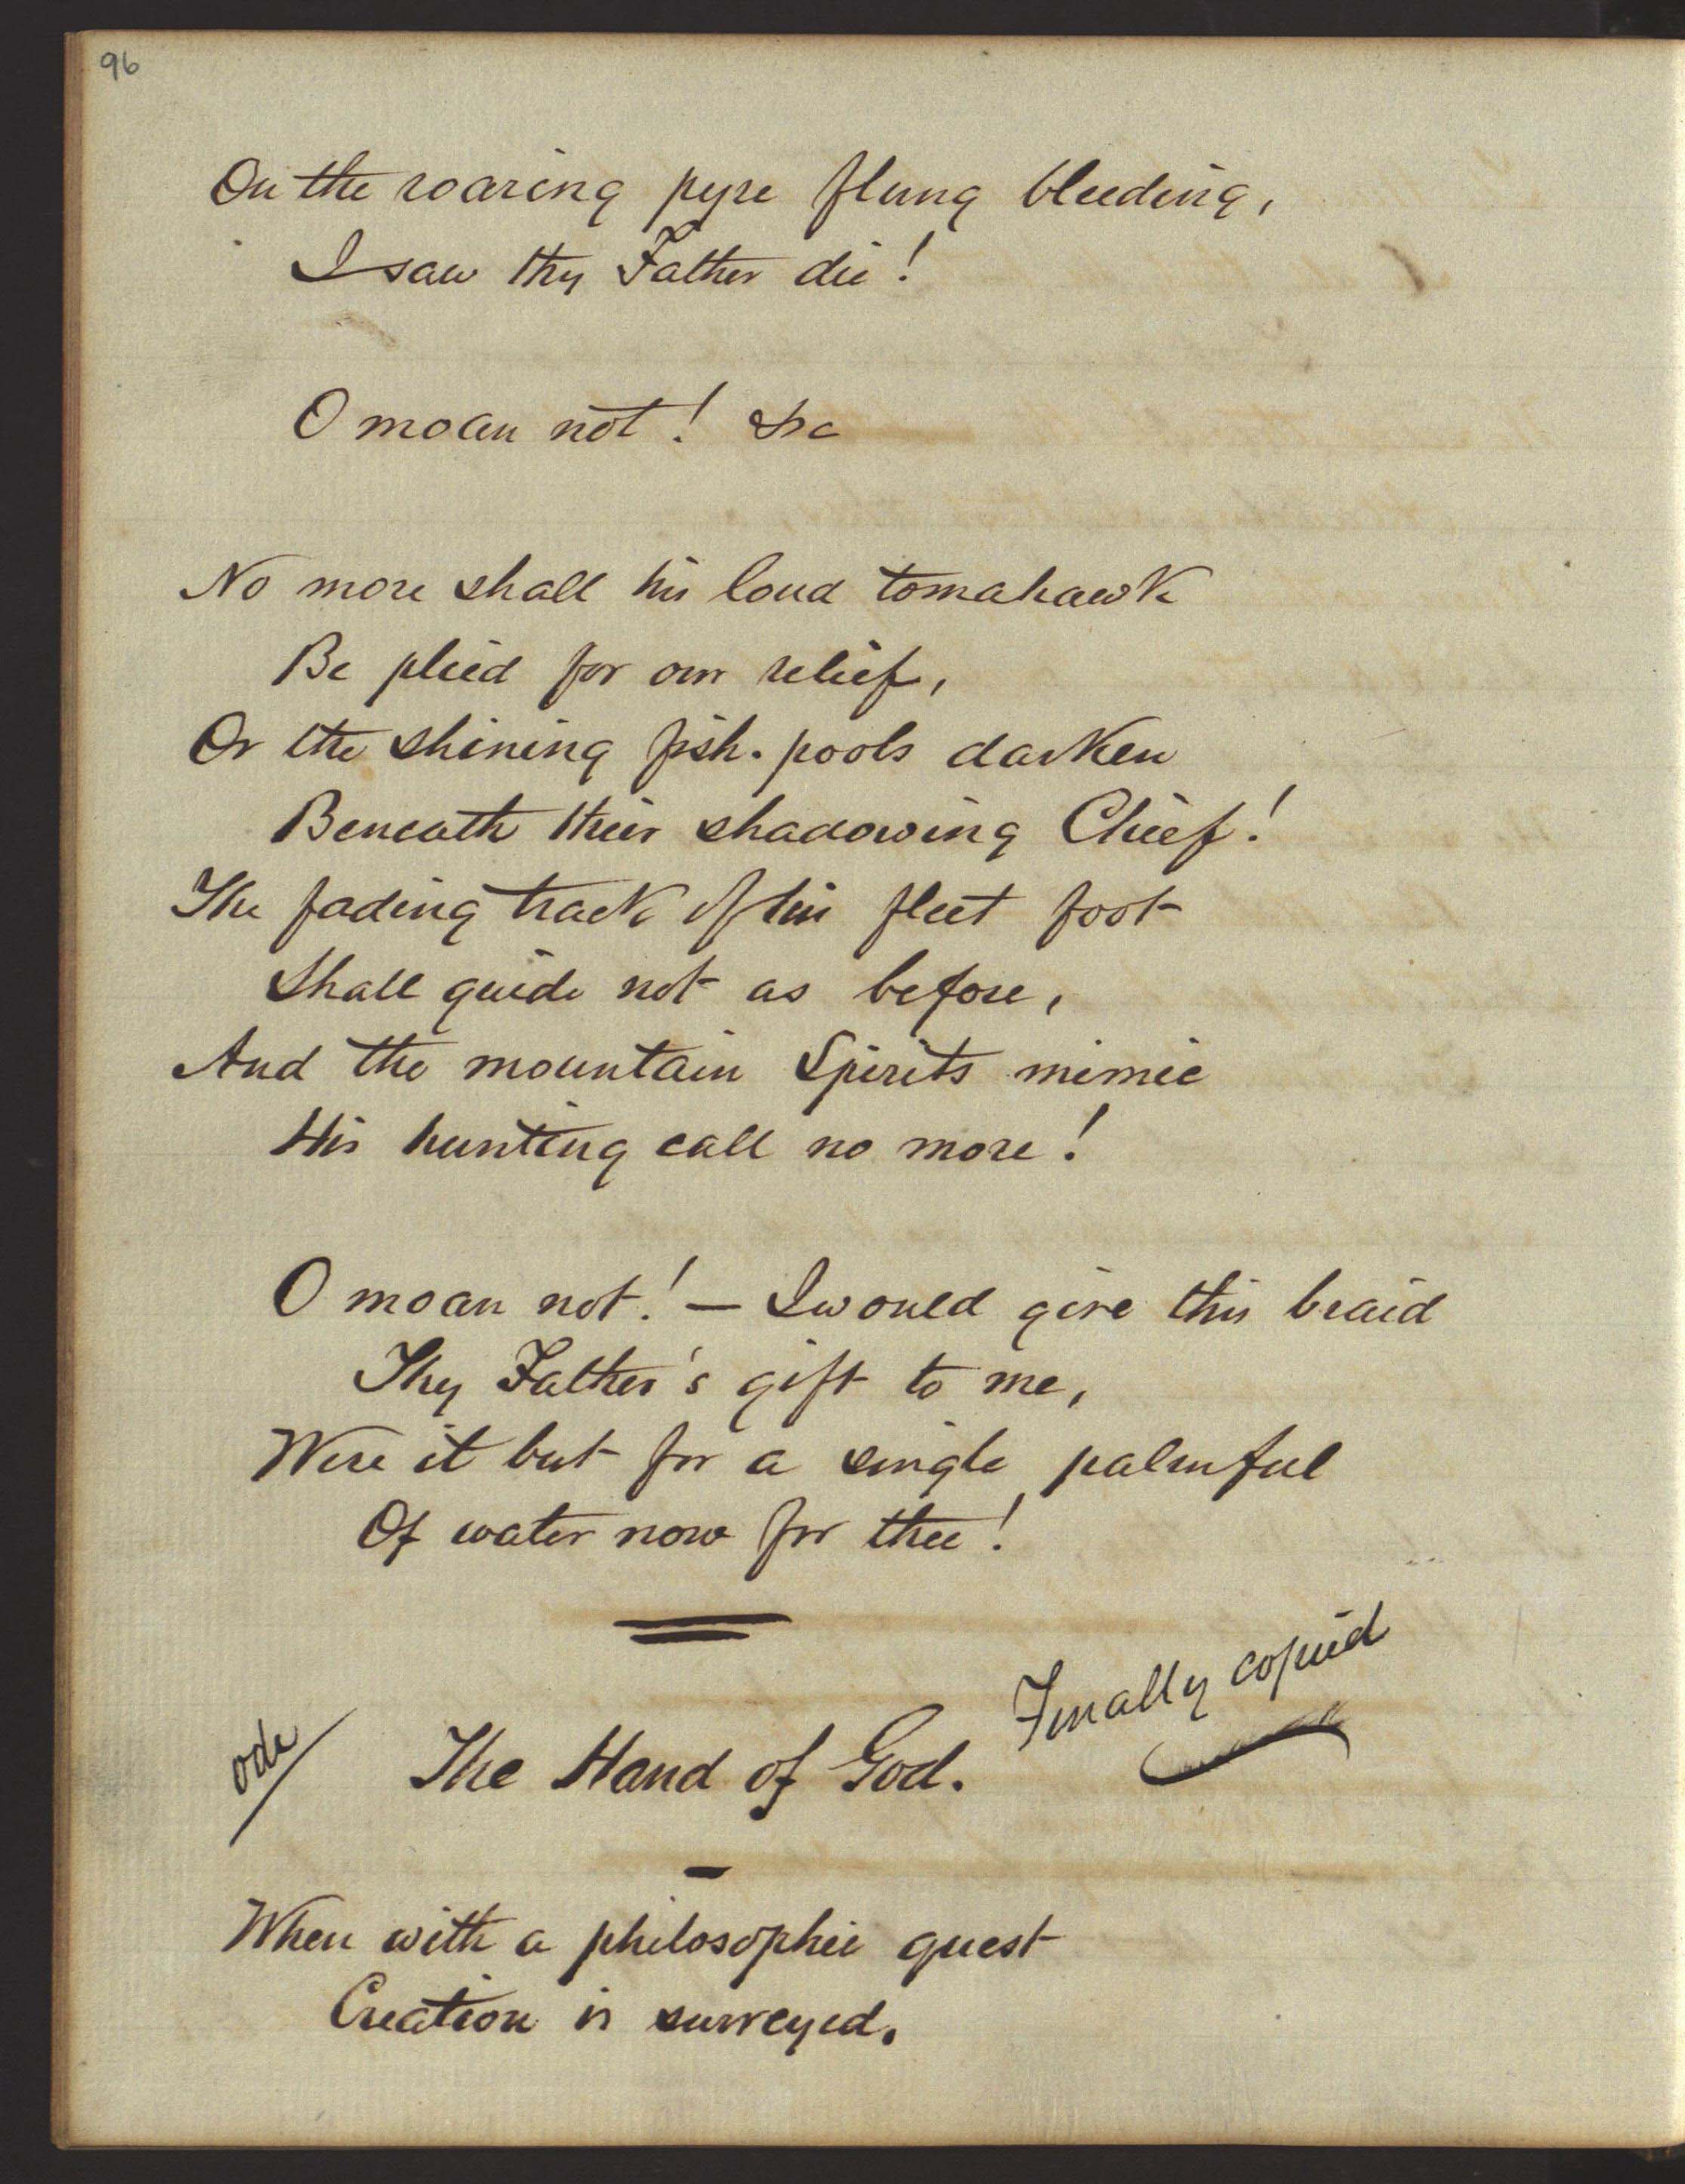 96
On the roaring pyre flung bleeding,
I saw thy Father die!
O moan not! &c
No more shall his loud tomahawk
Be plied for our relief,
Or the shining fish-pools darken
Beneath their shadowing Chief!
The fading track of his fleet foot
Shall guide not as before,
And the mountain Spirits mimic
His hunting call no more!
O moan not! — I would give this braid
Thy Father's gift to me,
Were it but for a single palmful
Of water now for thee!
Finally copied
ode/ The Hand of God.
When with a philosophic quest
Creation is surveyed,